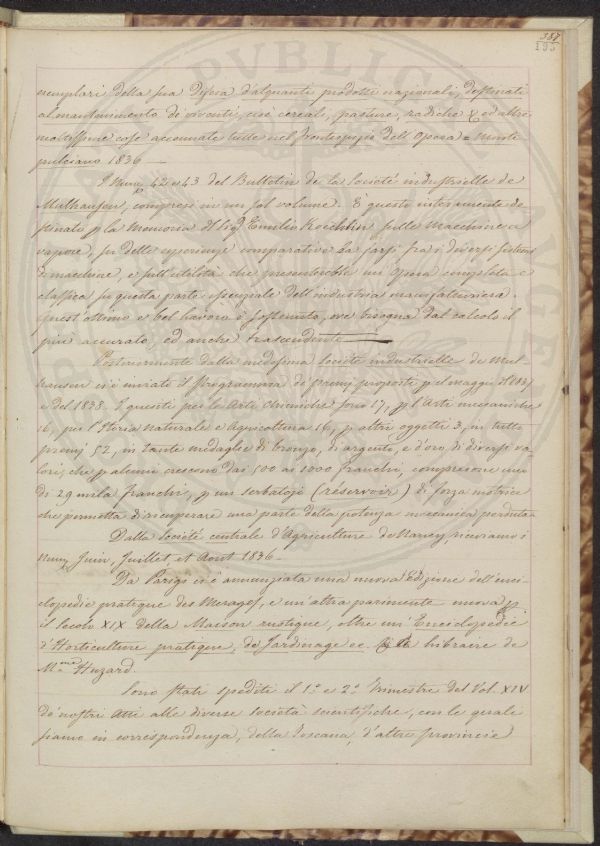 387
195
esemplari della sua Difesa d'alquanti prodotti nazionali, destinati
al mantenimento de' viventi, cioè cereali, pasture, radiche & ed altre
moltissime cose accennate tutte nel frontespizio dell'Opera = Monte
pulciano 1836 —
I Num. 42 e 43 del Bulletin de la Société industrielle de
Mulhausen, compresi in un sol volume. È questo intieramente de
stinato p. la Memoria del Sig. Emilio Koechlin sulle Macchine a
vapore, su delle esperienze comparative da farsi fra i diversi sistemi
di macchine, e sull'utilità che presenterebbe un'Opera completa e
classica su questa parte essenziale dell'industria manifatturiera.
Quest'ottimo e bel lavoro è sostenuto, ove bisogna dal calcolo il
più accurato, ed anche trascendente —
Posteriormente dalla medesima Société industrielle de Mul-
hausen ci è inviato il Programma di premj proposti p. il maggio 1837
e del 1838. I quesiti per le Arti chimiche sono 17, p. l'Arti meccaniche
16, per l'Istoria naturale e Agricoltura 16, p. altri oggetti 3, in tutto
premj 52, in tante medaglie di bronzo, di argento, e d'oro, di diversi va-
lori, che p. alcuni crescono dai 500 ai 1000 franchi, compresone uno
di 29 mila franchi, p. un serbatojo (réservoir) di forza motrice
che permetta di ricuperare una parte della potenza meccanica perduta.
Dalla Société centrale d'Agriculture de Nancy, ricevemmo i
Num. Juin, Juillet, et Aout 1836 —
Da Parigi ci è annunziata una nuova Edizione dell'enci-
clopedie pratique des Menages, e un'altra parimente nuova p.
il Secolo XIX della Maison rustique, oltre un'Enciclopedie
d'Horticulture pratique, de Jardinage ec. libraire de
M.ma Huzard.
Sono stati spediti il 1.° e 2.° Trimestre del Vol. XIV
de' nostri Atti alle diverse società scientifiche, con le quali
siamo in corrispondenza, della Toscana, d'altre provincie